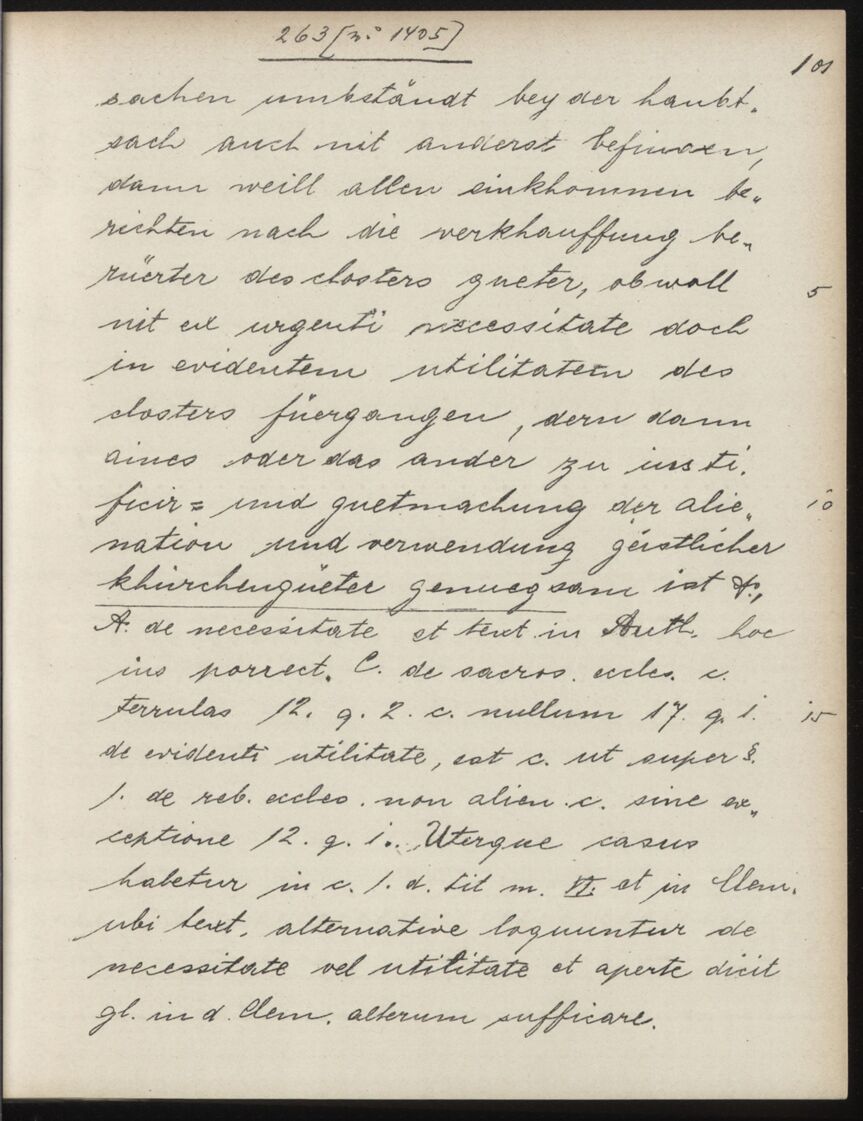 263 [n.° 1405]
101
sachen umbständt bey der haubt„
sach auch nit anderst befinden,
dann weill allen einkhommen be„
richten nach die verkhauffung be„
rüerter des closters gueter, obwoll
5
nit ex urgenti necessitate doch
in evidentem utilitatem des
closters füergangen, dern dann
aines oder das ander zu iusti.
ficir= und guetmachung der alie„
10
nation und verwendung geistlicher
khürchengüeter genuegsam ist
A. de necessitate et text in Auth. hoc
ius porrect. C. de sacros. eccles. c.
terrulas 12. q. 2. c. nullum 17. q. 1.
15
de evidenti utilitate, est c. ut super §.
1. de reb. eccles. non alien. c. sine ex„
ceptione 12. q. 1.. Uterque casus
habetur in c. 1. d. tit m. VI. et in Clem.
ubi text. alternative loquuntur de
necessitate vel utilitate et aperte dicit
gl. in d. Clem. alterum sufficare.